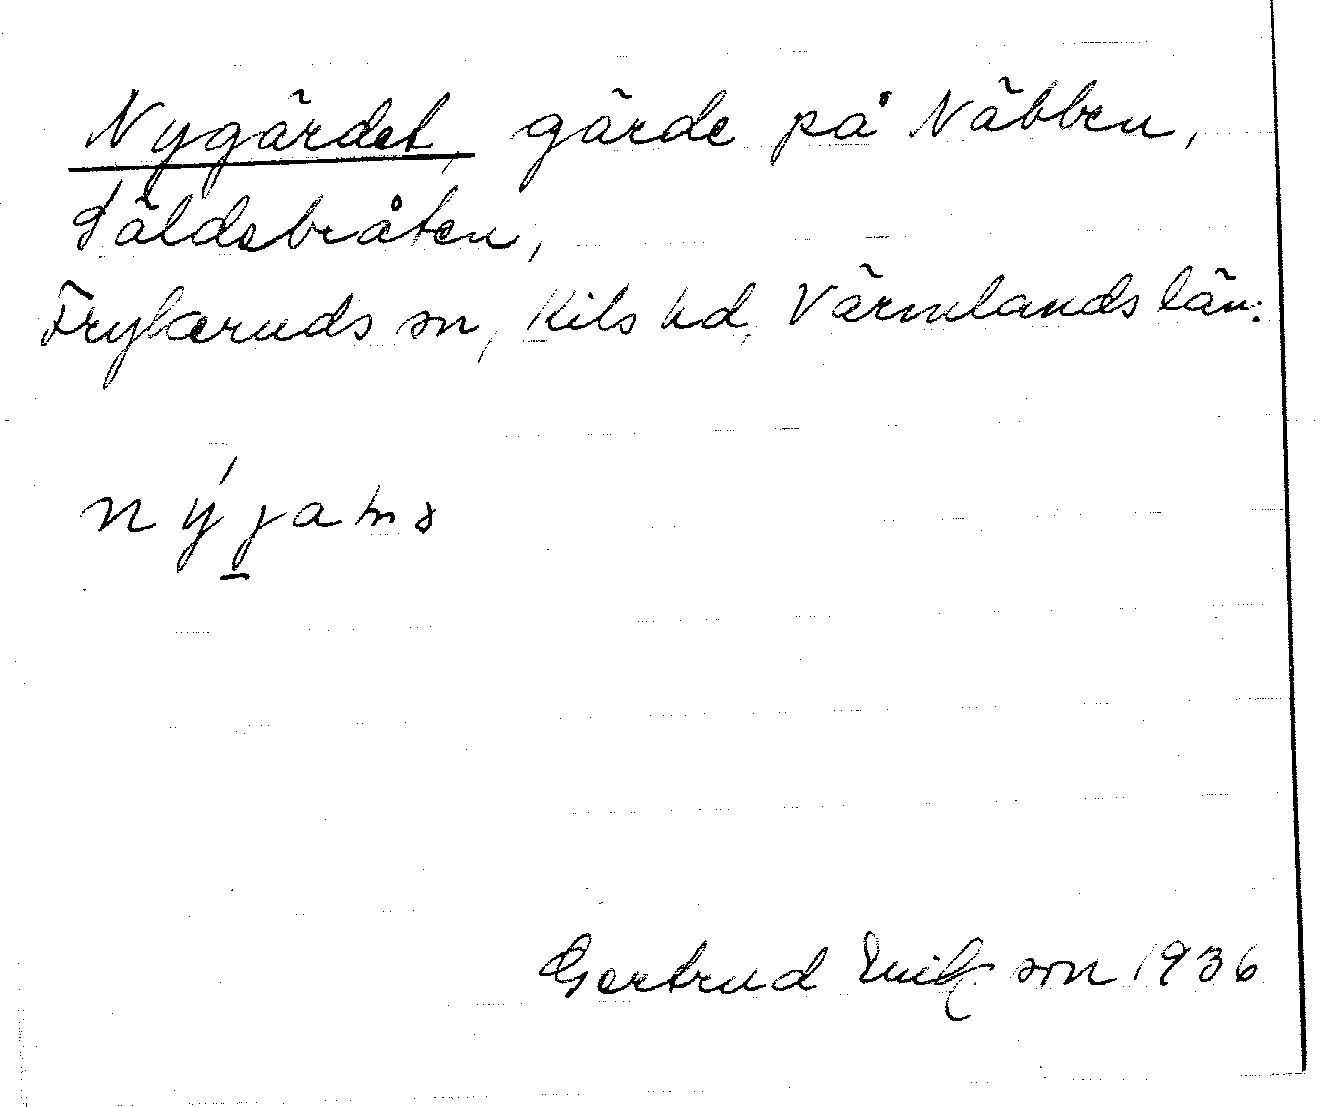 Nygärdet, gärde på Näbben,
Säldebråten,
Frykeruds sn, Kils hd, Värmlands län.
Gertrud son 1936